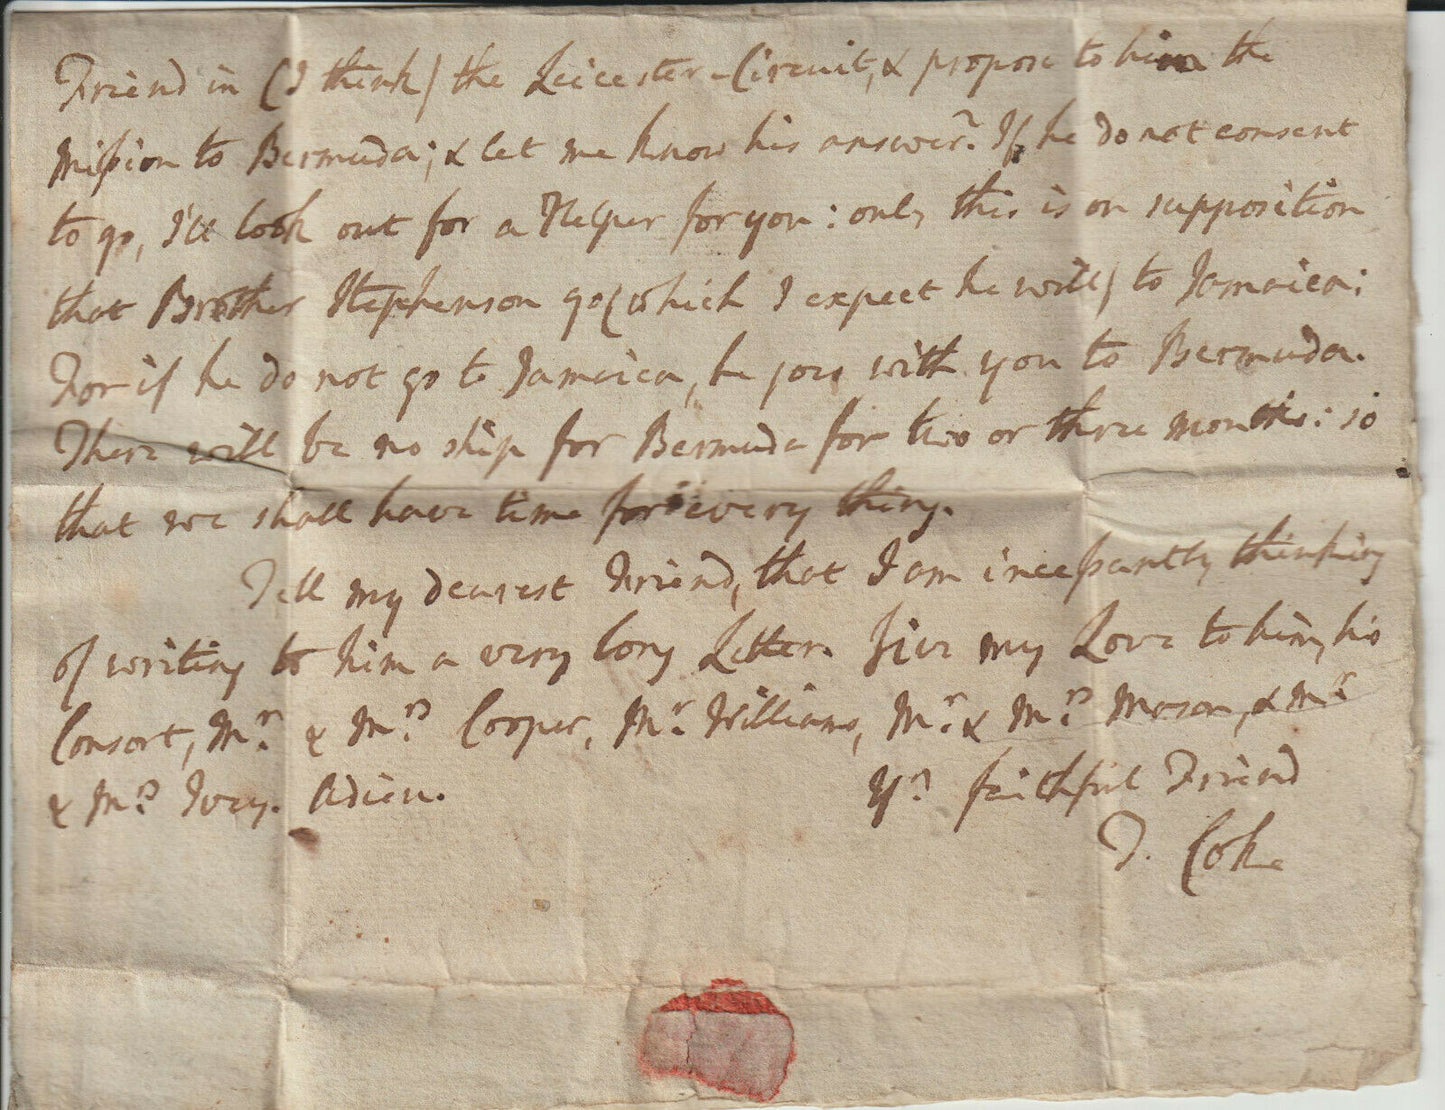 Friend in (I think) the Leicester-Circuit, & propose to him the
Mission to Bermuda; & let me know his answer. If he do not consent
to go, I'll look out for a Helper for you: only this is on supposition
that Brother Stephenson go (which I expect he will) to Jamaica:
For if he do not go to Jamaica, he goes with you to Bermuda.
There will be no ship for Bermuda for two or three months: so
that we shall have time for every thing.
Tell my dearest Friend, that I am incessantly thinking
of writing to him a very long Letter. Give my Love to him, his
Consort, Mr. & Mrs. Cooper, Mr. Williams, Mr. & Mrs. Mason, & Mr.
& Mrs. Ivey. Adieu. Yr. faithful Friend
T. Coke